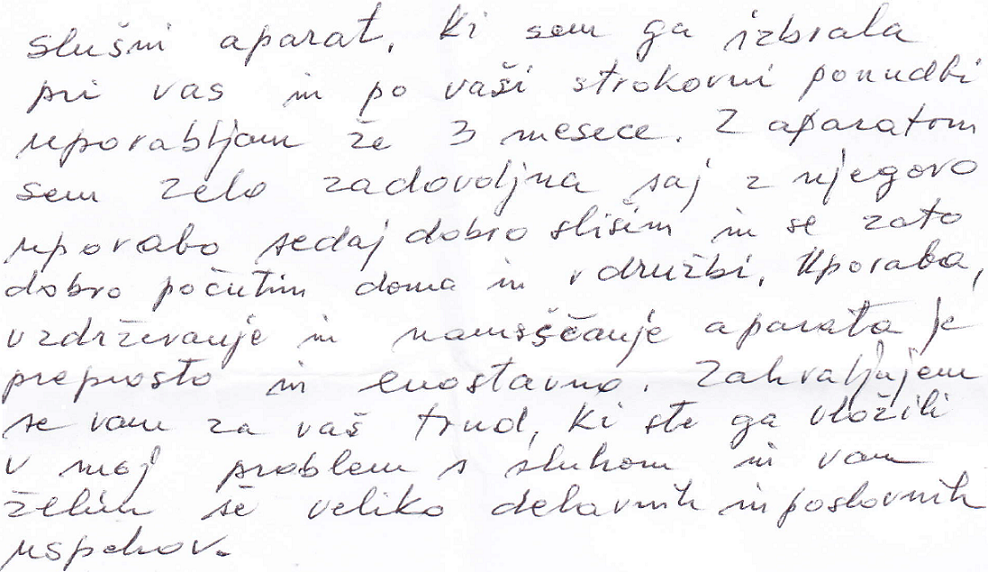 slušni aparat, ki sem ga izbrala
pri vas in po vaši strokovni ponudbi
uporabljam že 3 mesece. Z aparatom
sem zelo zadovoljna saj z njegovo
uporabo sedaj dobro slišim in se zato
dobro počutim doma in v družbi. Uporaba,
vzdrževanje in namščanje aparata je
preprosto in enostavno. Zahvaljujem
se vam za vaš trud, ki ste ga vložili
v moj problem s sluhom in vam
želim še veliko delavnih in poslovnih
uspehov.